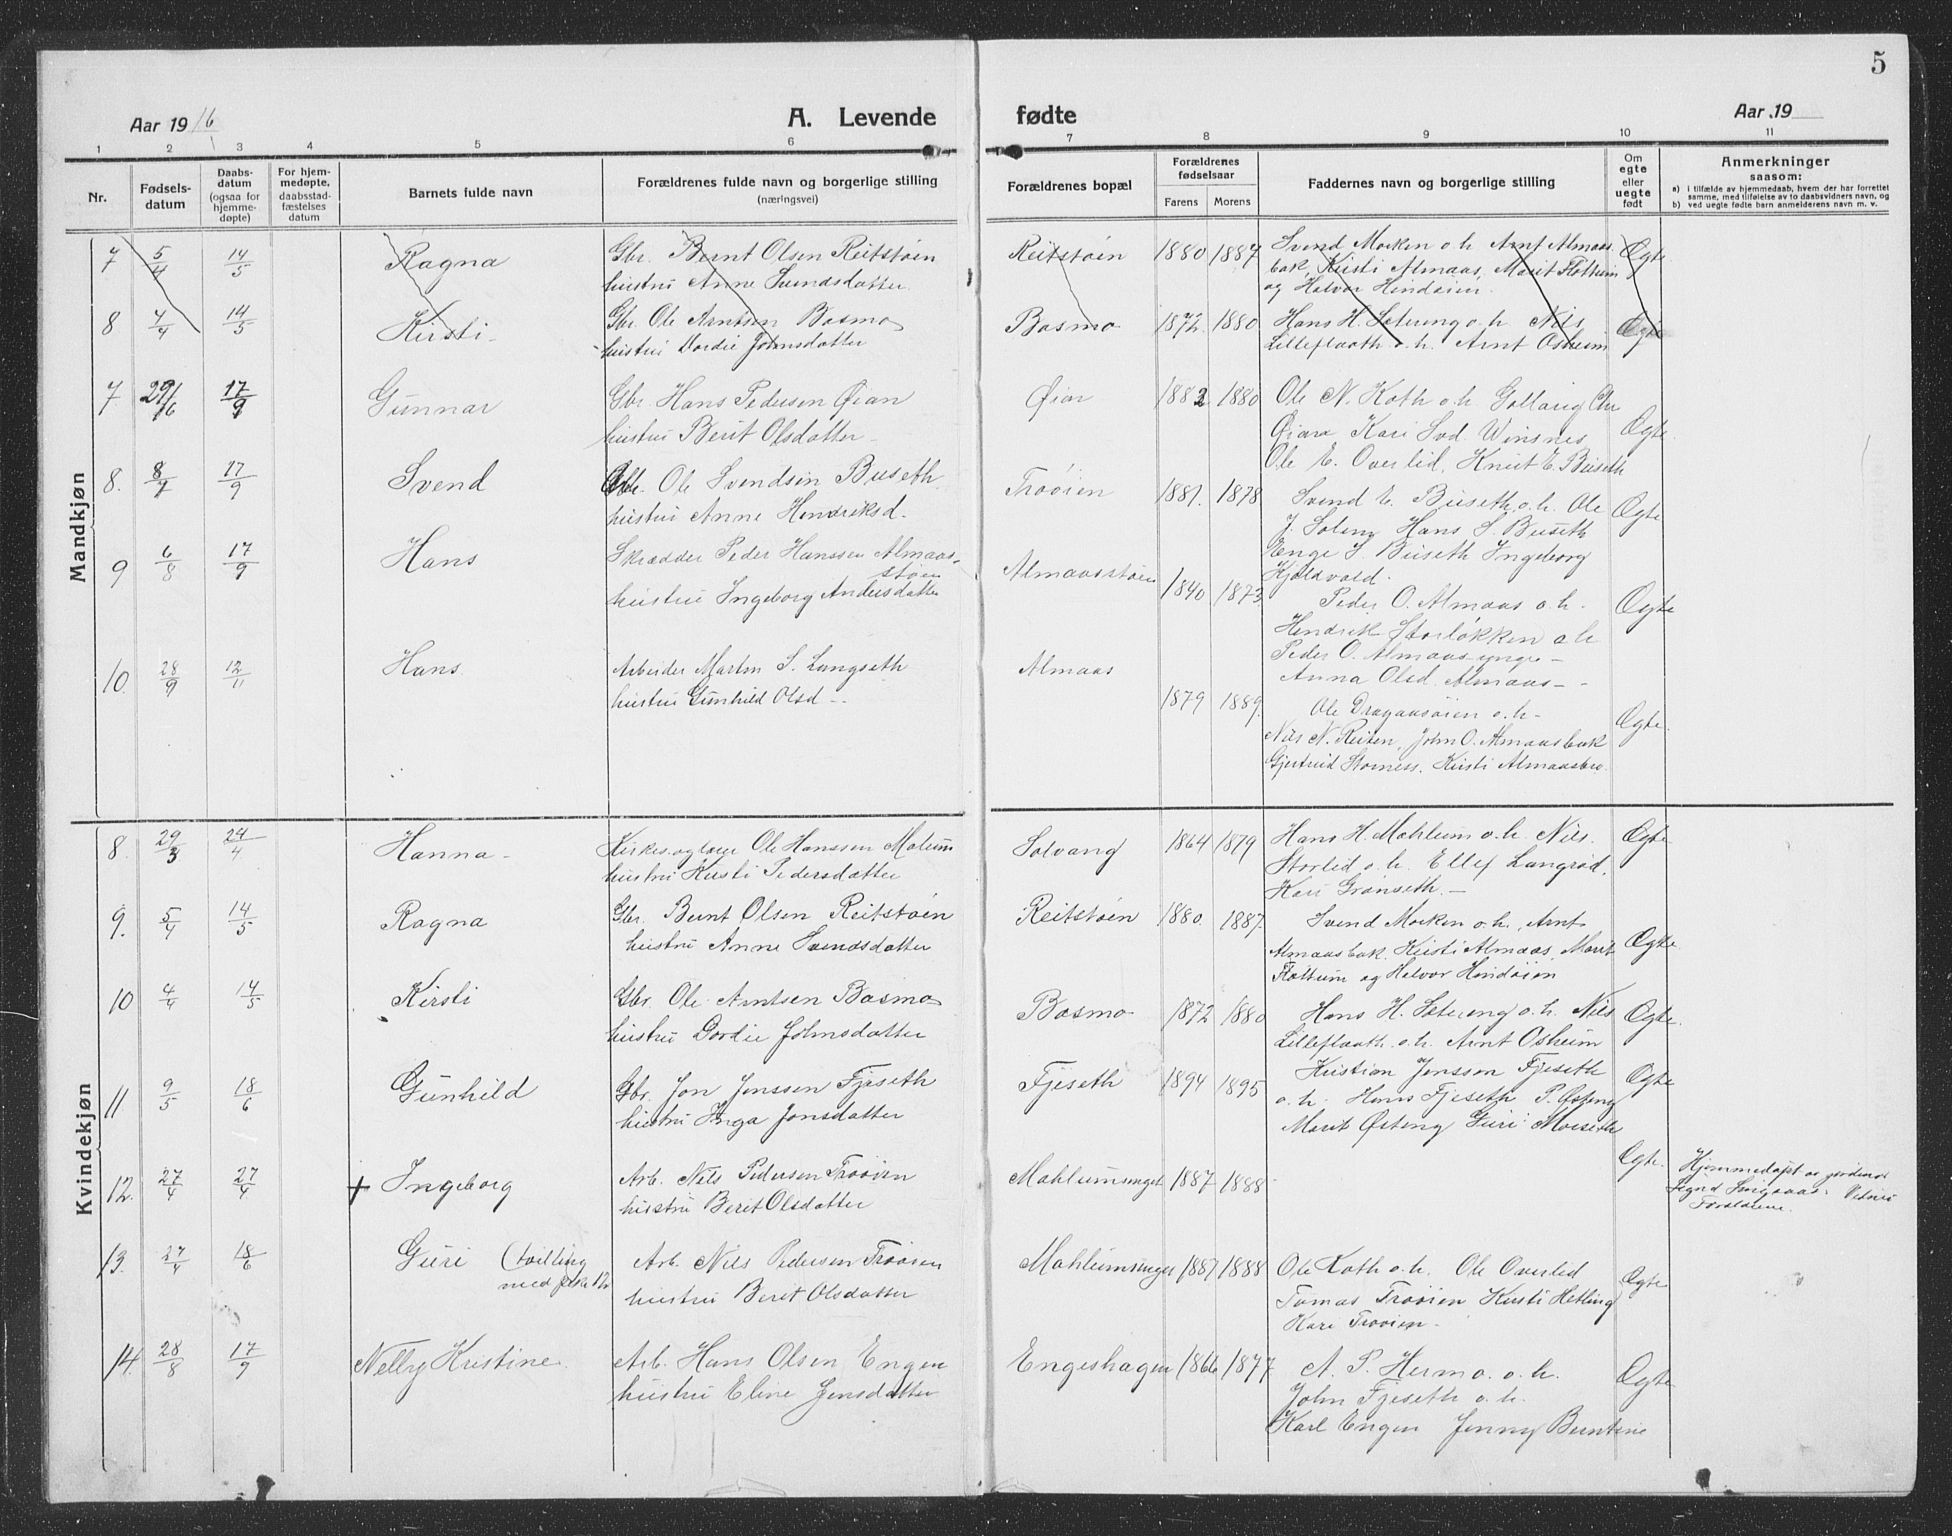 5
Aar 1916
A. Levende
fødte
Aar 19
1 2 3 4 5 6 7 8 9 10 11
Nr.
Fødsels-
datum
Daabs-
datum
(ogsaa for
hjemme-
døpte)
For hjem-
medøpte,
daabsstad-
fæstelses
datum
Barnets fulde navn
Forældrenes fulde navn og borgerlige stilling
(næringsvei)
Forældrenes bopæl
Forældrenes
fødselsaar
Farens Morens
Faddernes navn og borgerlige stilling
Om
egte
eller
uegte
født
Anmerkninger
saasom:
a) i tilfælde av hjemmedaab, hvem der har forrettet
samme, med tilføielse av to daabsvidners navn, og
b) ved uegte fødte barn anmelderens navn m. v.
Mandkjøn
7 5/4 14/5 Ragna Gbr. Bernt Olsen Reitstøen Reitstøen 1880 1887 Svend Moeken o.h. Arnt Almaas Ægte
hustru Anne Svendsdatter bak, Kirsti Almaas, Marit Flottum
og Halvor Hindøien.
8 4/4 14/5 Kirsti Gbr Ole Arntsen Bosmo Bosmo 1872 1880 Hans H. Setereng o.h. Nils Ægte
hustru Dordie Johnsdatter Lilleflaath o.h. Arnt Osheim
7. 29/6 17/9 Gunnar Gbr. Hans Pedersen Øian Øian 1882 1880 Ole N. Koth o.h.
hustru Berit Olsdatter Øian Kari Svd. Winsnes Ægte.
Ole E. Overlid, Knut E. Buseth
8. 8/7 17/9 Svend Gbr. Ole Svendsen Buseth Trøøien 1881. 1878 Svend E. Buseth, o.h. Ole Ægte
hustru Anne Hendriksd. J. Soleng Hans S. Buseth
Enge S. Buseth Ingeborg
Kjeldvold.
9 6/8 17/9 Hans Skrædder Peder Hanssen Almaas-
støen Almaasstøen 1840 1873 Peder O. Almaas o.h. Ægte
hustru Ingeborg Andersdatter Hendrik Storløkken o.h
Peder O. Almaas yngre
Anna Olsd. Almaas
10. 28/9 12/11 Hans. Arbeider Martin S. Langseth Almaas 1879 1889. Ole Dragaasøien o.h. Ægte.
hustru Gunhild Olsd Nils N. Reiten, John O. Almaasbak
Gjertrud Storness. Kirsti Almaasbro.
Kvindekjøn
8. 29/3 24/4 Hanna Kirkes. og lærer Ole Hanssen Moleum Solvang 1864 1879 Hans H. Mahlum o.h. Nils Ægte
hustru Kirsti Pedersdatter Storlid o.h. Ellef Langrød,
Kari Grønseth.
9. 5/4 14/5 Ragna Gbr. Bernt Olsen Reitstøen Reitstøen 1880. 1887. Svend Moeken o.h., Arnt
hustru Anne Svendsdatter Almaasbak. Kirsti Almaas, Marit Ægte
Flottum og Halvor Hindøien
10 4/4 14/5 Kirsti Gbr. Ole Arntsen Bosmo Bosmo 1872 1880 Hans H. Setereng o.h. Nils Ægte.
hustru Dordie Johnsdatter Lilleflaath. o.h. Arnt Osheim
11 9/5 18/6 Gunhild Gbr. Jon Jonssen Fjeseth Fjeseth 1894 1895 Kristian Jonsson Fjeseth Ægte
hustru Inga Jonsdatter o.h. Hans Fjeseth P. Østeng
Marit Østeng Guri Moeseth
12. 27/4 27/4 + Ingeborg Arb. Nils Pedersen Trøøien Mahlumsunget 1887 1888 Ægte. Hjemmedøpt av jordmor
hustru Berit Olsdatter Singsaas. Vidner
Forældrene.
13. 27/4 18/6 Guri (tvilling Arb. Nils Pedersen Trøøien Mahlumsunget 1887 1888 Ole Koth o.h. Ole Overlid Ægte
med pike 12 hustru Berit Olsdatter Tomas Trøøien Kirsti Hetling
Kari Trøøien
14. 28/8 17/9 Nelly Kristine. Arb. Hans Olsen Engen Engeshagen 1866 1877 A. P. Hermo. o.h. Ægte
hustru Eline Jensdatter John Fjeseth o.h.
Karl Engen Jenny Berntine